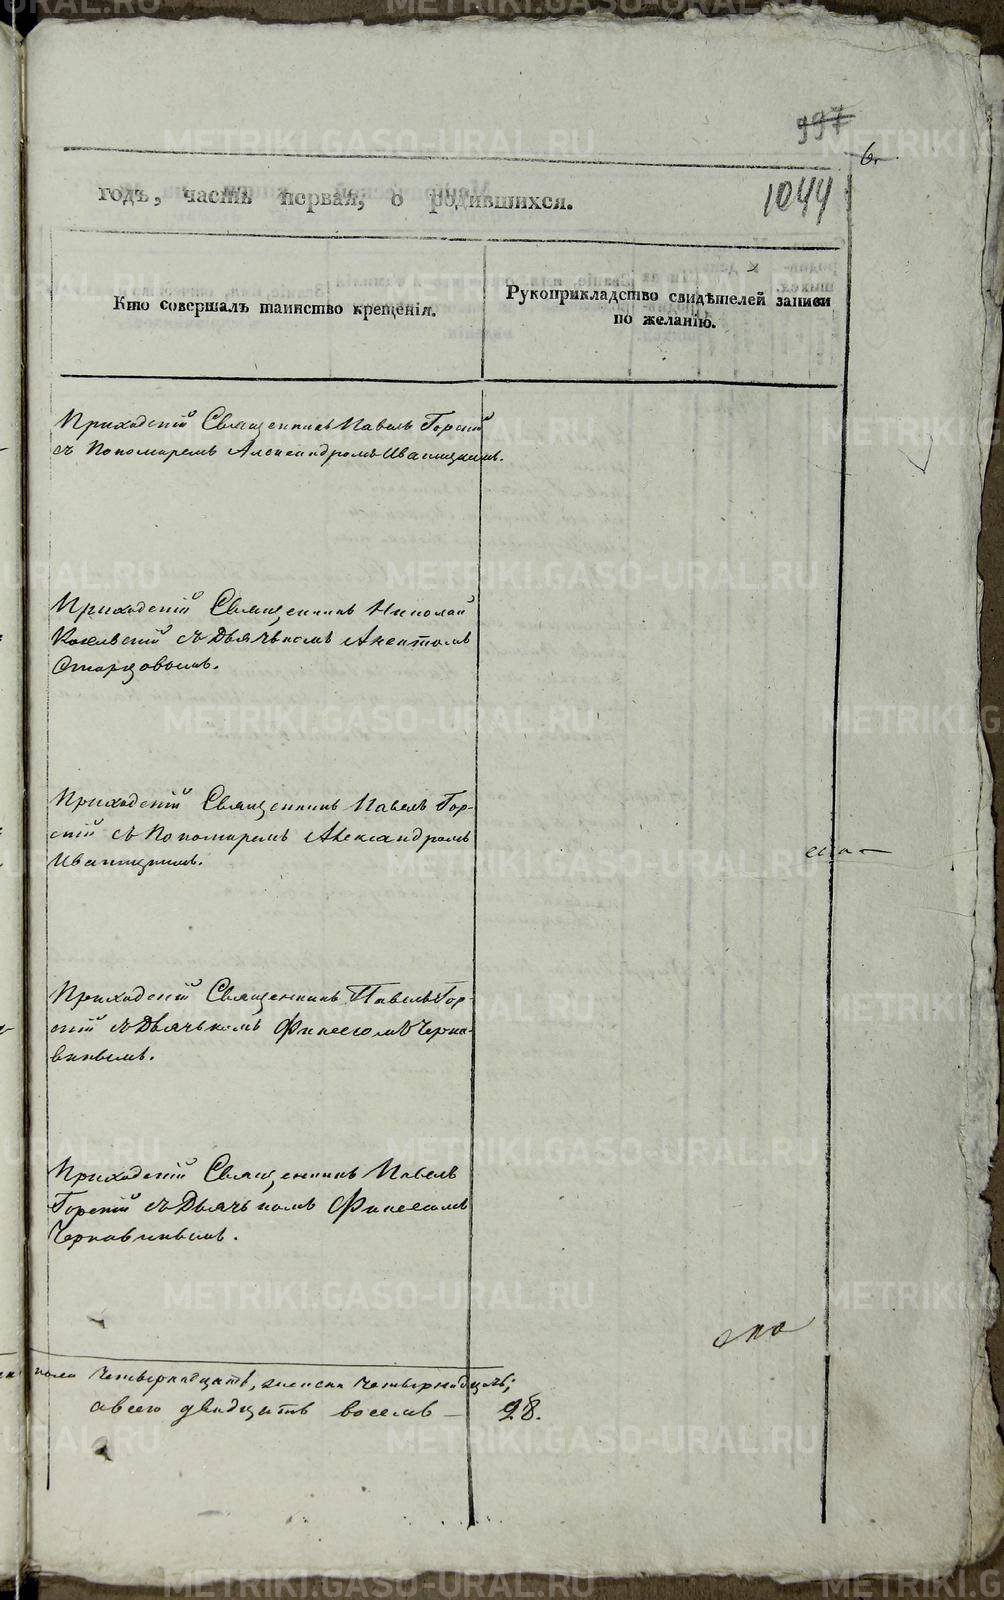 997
6.
годъ, часть первая, о родившихся.
1044
Кто совершалъ таинство крещенія.
Рукоприкладство свидѣтелей записи
по желанію.
Приходскій Священникъ Павелъ Горскій
съ Пономаремъ Александромъ Иваницкимъ.
Приходскій Священникъ Николай
съ Дьячькомъ
Старцовымъ.
Приходскій Священникъ Павелъ Гор-
скій съ Пономаремъ Александромъ
Иваницкимъ.
Приходскій Священникъ Павелъ Гор-
скій съ Дьячькомъ Финеесомъ Черна-
винымъ.
Приходскій Священникъ Павелъ
Горскій съ Дьячькомъ Финеесомъ
Чернавинымъ.
пола Четырнадцать, женска Четырнадцать;
а всего двадцать восемь — 28.
METRIKI.GASO-URAL.RU